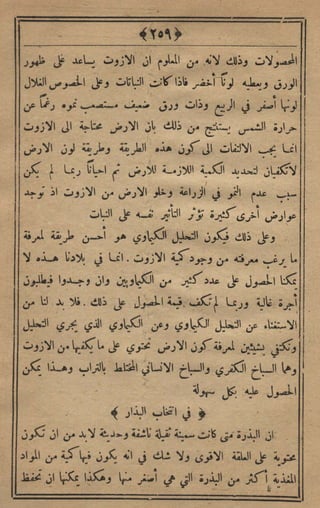 ﴿ ٢٥٩ ﴾
المحصولات وذلك لانه من المعلوم ان الازوت يساعد على ظهور
الورق ويعطيه لونًا أخضر فاذا كانت النباتات وعلى الخصوص الغلال
لونها أصفر في الربيع وذات ورق ضعيف مستصعب نموه رغمًا عن
حرارة الشمس يستنتج من ذلك بان الارض محتاجة الى الازوت
انما يجب الالتفات الى كون هذه الطريقة وطريقة لون الارض
لا تكفيان لتحديد الكمية اللازمة للارض ثم احيانًا ربما لم يكن
سبب عدم النمو في الزراعة وخلو الارض من الازوت اذ توجد
عوارض أخرى كثيرة تؤثر التأثير نفسه على النبات
وعلى ذلك فيكون التحليل الكيماوي هو أحسن طريقة لمعرفة
ما يرغب معرفته من وجود كمية الازوت . انما في بلادنا هذه لا
يمكنا الحصول على عدد كثير من الكيماويين وان وجدوا فيطلبون
أجرة غالية وربما لم تكف قيمة الحصول على ذلك . فلا بد لنا من
الاستغناء عن التحليل الكيماوي وعن الكيماوي الذي يجري التحليل
ونكتفي بشيئين لمعرفة كون الارض تحتوي على ما يكفيها من الازوت
وهما السباخ الكفري والسباخ الانساني المختلط بالتراب وهذا يمكن
الحصول عليه بكل سهولة
﴿ في انتخاب البذار ﴾
ان البذرة متى كانت سمينة ثقيلة ناشفة وحديثة لا بد من ان تكون
محتوية على العلقة الاقوى ولا شك في انه يكون فيها كمية من المواد
المغذية أكثر من البذرة التي هي أصغر منها وهكذا يمكنها ان تحفظ